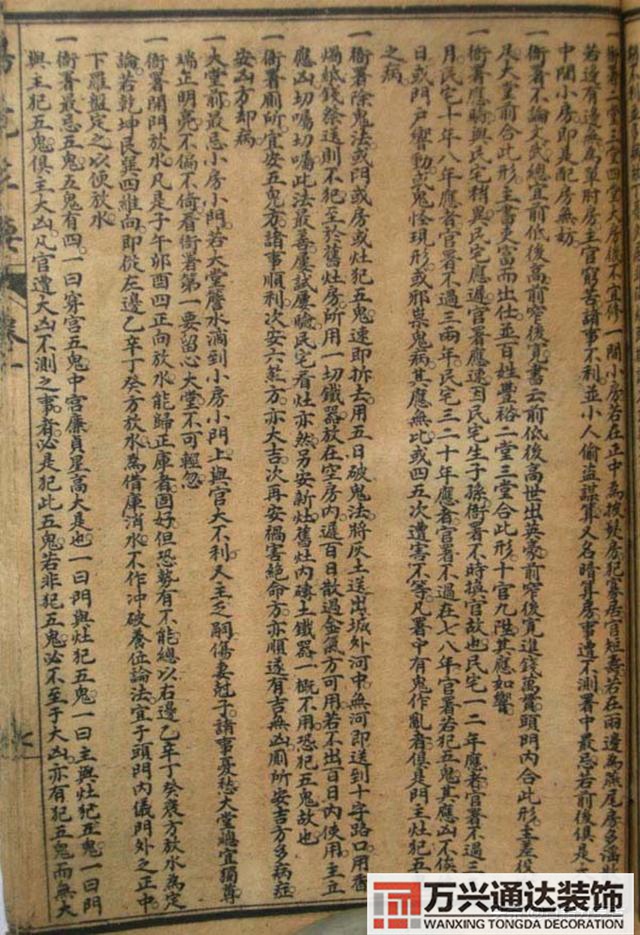 一衙署二堂三堂四堂大房後不宜停一間小房若在正中為披軟房犯寡居官短壽若在兩邊為燕尾房多
若邊有邊無為單肘房主官窮苦諸事不利並小人偷盜謀算又名暗算房事遭不測署中最忌若前後俱是大
中間小房即是配房無妨
一衙署不論文武總宜前低後高前窄後寬書云前低後高世出英豪前窄後寬進錢萬貫頭門內合此形主差役
足大堂前合此形主書吏富而出仕並百姓豐裕二堂三堂合此形十官九陞其應如響
一衙署應驗與民宅稍異民宅應遲官署應速因民宅生子孫衙署不時換官故也民宅一二年應者官署不過三
月民宅十年八年應者官署不過三兩年民宅三二十年應者官署不過在七八年官署若犯五鬼其應凶不俟
日或門戶響動或鬼怪現形或邪祟鬼病其應無比或四五次遭害不等凡署中有鬼作亂者俱是門主灶犯五
之病
一衙署除鬼法或門或房或灶犯五鬼速即拆去用五日破鬼法將灰土送出城外河中無河即送到十字路口用香
燭紙錢祭送則不犯至於舊灶房所用一切鐵器放在空房內過百日散過金氣方可用若不出百日內使用主立
應凶切囑切囑此法最善屢試屢驗民宅看灶亦然另安新灶舊灶內磚土鐵器一概不用恐犯五鬼故也
一衙署廁所宜安五鬼方諸事順利次安六煞方亦大吉次再安禍害絕命方亦順遂有吉無凶廁所安吉方多病症
安凶方却病
一大堂前最忌小房小門若大堂簷水滴到小房小門上與官大不利又主乏嗣傷妻尅子諸事憂愁大堂總宜獨尊
端正明亮不偏不倚看衙署第一要留心大堂不可輕忽
一衙署開門放水凡是子午卯酉四正向放水能歸正庫者固好但恐勢有不能總以右邊乙辛丁癸衰方放水為定
論若乾坤艮巽四維向即從左邊乙辛丁癸方放水為借庫消水不作冲破養位論法宜于頭門內儀門外之正中
下羅盤定之以便放水
一衙署最忌五鬼五鬼有四一曰穿宮五鬼中宮廉貞星高大是也一曰門與灶犯五鬼一曰主與灶犯五鬼一曰門
與主犯五鬼俱主大凶凡官遭大凶不測之事者必是犯此五鬼若非犯五鬼必不至于大凶亦有犯五鬼而無大
万兴通达装饰
WANXING TONGDA DECORATION